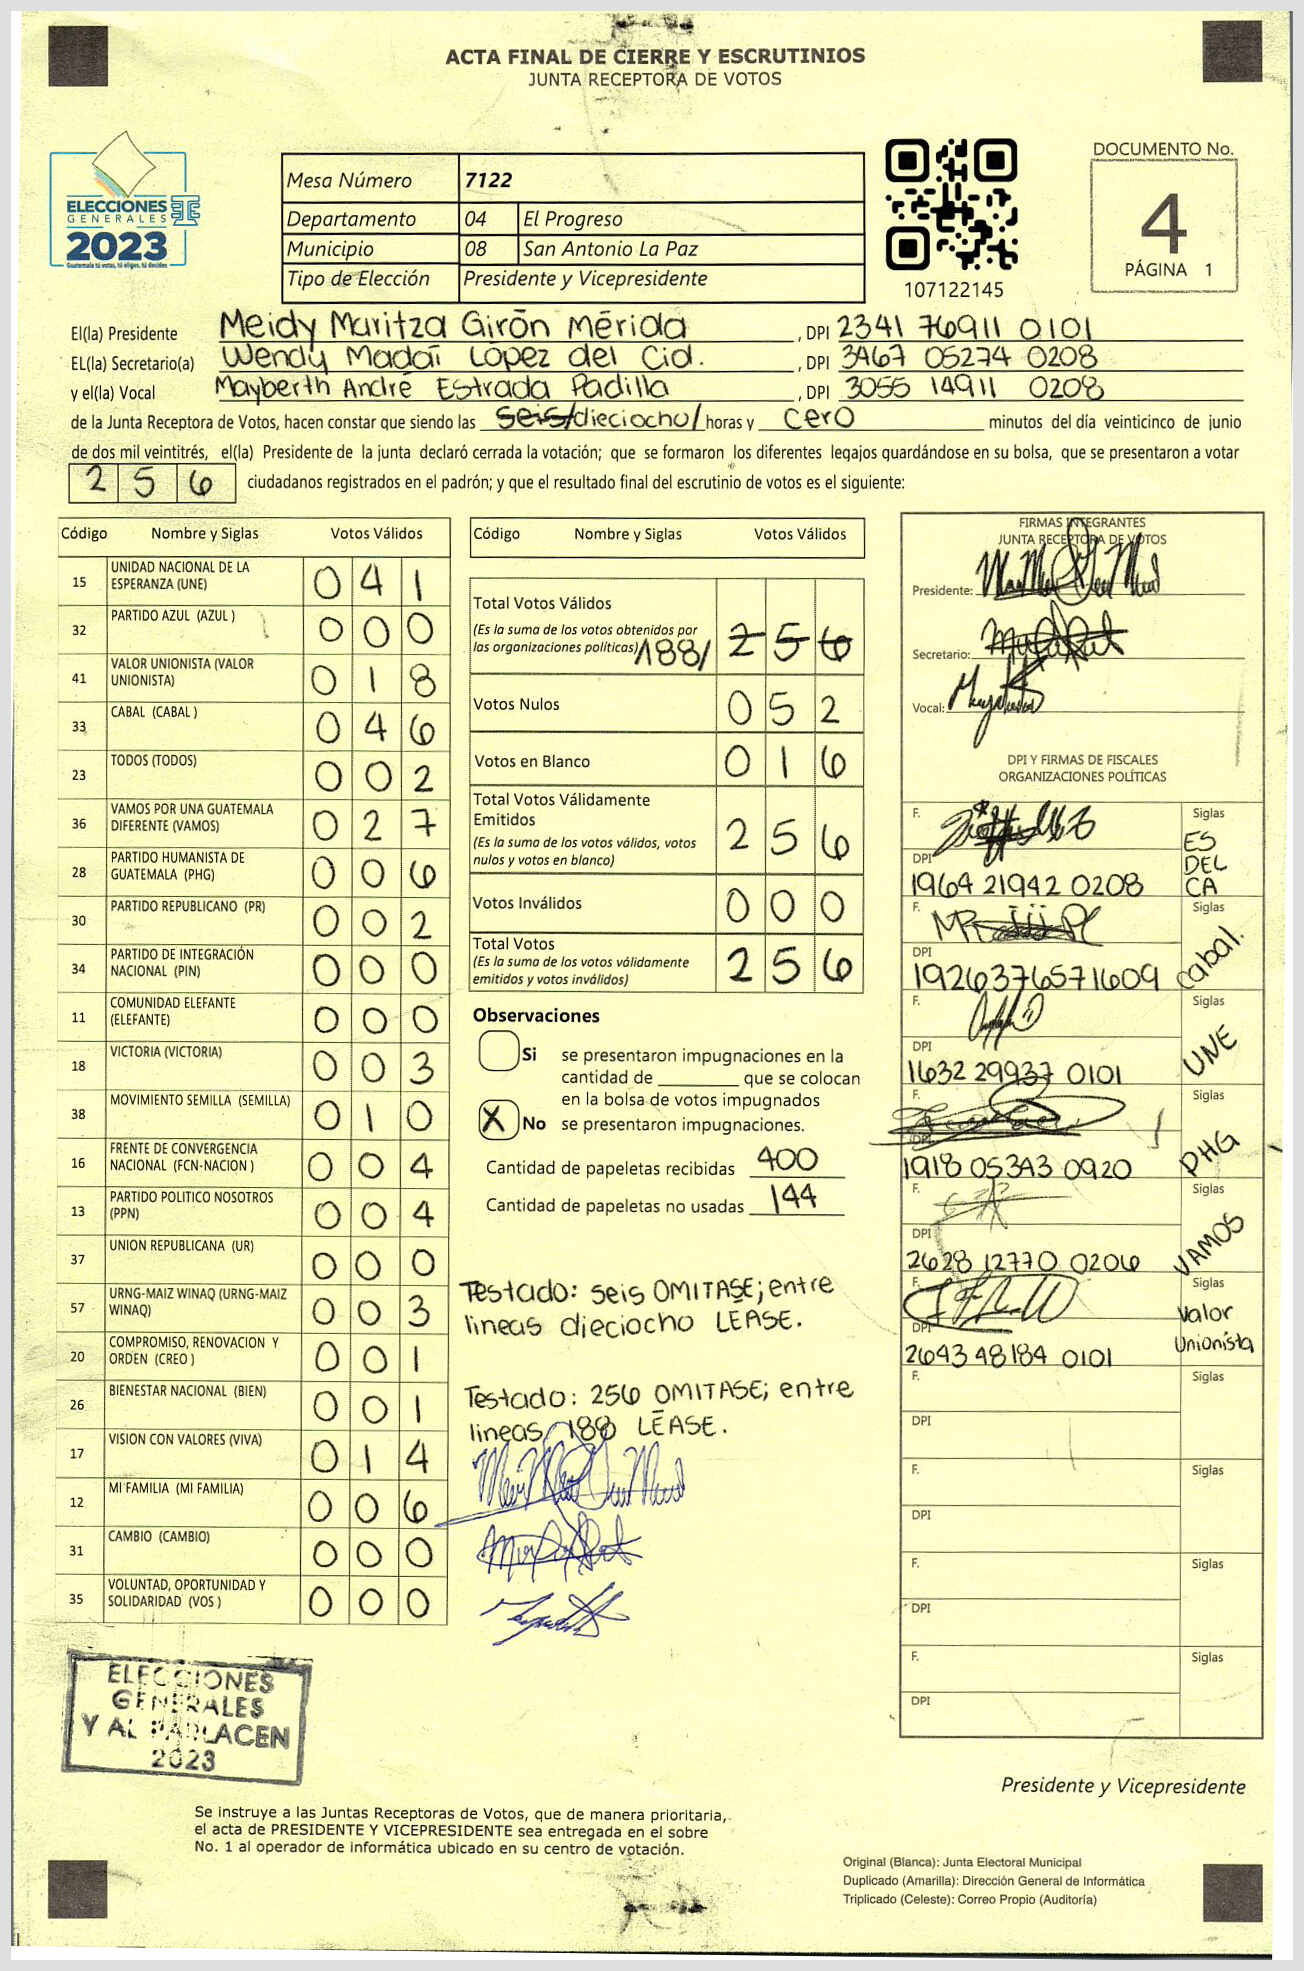 ACTA FINAL DE CIERRE Y ESCRUTINIOS
JUNTA RECEPTORA DE VOTOS
ELECCIONES
GENERALES
2023
Guatemala tú votas, tú eliges, tú decides
Mesa Número 7122
Departamento 04 El Progreso
Municipio 08 San Antonio La Paz
Tipo de Elección Presidente y Vicepresidente
107122145
DOCUMENTO No.
4
PÁGINA 1
El(la) Presidente Meidy Maritza Girón Mérida , DPI 2341 76911 0101
EL(la) Secretario(a) Wendy Madaí López del Cid. , DPI 3467 05274 0208
y el(la) Vocal Mayberth André Estrada Padilla , DPI 3055 14911 0208
de la Junta Receptora de Votos, hacen constar que siendo las seis/dieciocho/ horas y cero minutos del día veinticinco de junio
de dos mil veintitrés, el(la) Presidente de la junta declaró cerrada la votación; que se formaron los diferentes legajos guardándose en su bolsa, que se presentaron a votar
2 5 6 ciudadanos registrados en el padrón; y que el resultado final del escrutinio de votos es el siguiente:
Código Nombre y Siglas Votos Válidos
15 UNIDAD NACIONAL DE LA ESPERANZA (UNE) 0 4 1
32 PARTIDO AZUL (AZUL ) 0 0 0
41 VALOR UNIONISTA (VALOR UNIONISTA) 0 1 8
33 CABAL (CABAL ) 0 4 6
23 TODOS (TODOS) 0 0 2
36 VAMOS POR UNA GUATEMALA DIFERENTE (VAMOS) 0 2 7
28 PARTIDO HUMANISTA DE GUATEMALA (PHG) 0 0 6
30 PARTIDO REPUBLICANO (PR) 0 0 2
34 PARTIDO DE INTEGRACIÓN NACIONAL (PIN) 0 0 0
11 COMUNIDAD ELEFANTE (ELEFANTE) 0 0 0
18 VICTORIA (VICTORIA) 0 0 3
38 MOVIMIENTO SEMILLA (SEMILLA) 0 1 0
16 FRENTE DE CONVERGENCIA NACIONAL (FCN-NACION ) 0 0 4
13 PARTIDO POLITICO NOSOTROS (PPN) 0 0 4
37 UNION REPUBLICANA (UR) 0 0 0
57 URNG-MAIZ WINAQ (URNG-MAIZ WINAQ) 0 0 3
20 COMPROMISO, RENOVACION Y ORDEN (CREO ) 0 0 1
26 BIENESTAR NACIONAL (BIEN) 0 0 1
17 VISION CON VALORES (VIVA) 0 1 4
12 MI FAMILIA (MI FAMILIA) 0 0 6
31 CAMBIO (CAMBIO) 0 0 0
35 VOLUNTAD, OPORTUNIDAD Y SOLIDARIDAD (VOS ) 0 0 0
Código Nombre y Siglas Votos Válidos
Total Votos Válidos
(Es la suma de los votos obtenidos por
las organizaciones políticas) /188/ 2 5 6
Votos Nulos 0 5 2
Votos en Blanco 0 1 6
Total Votos Válidamente
Emitidos 2 5 6
(Es la suma de los votos válidos, votos
nulos y votos en blanco)
Votos Inválidos 0 0 0
Total Votos
(Es la suma de los votos válidamente
emitidos y votos inválidos) 2 5 6
Observaciones
Si se presentaron impugnaciones en la
cantidad de ________ que se colocan
en la bolsa de votos impugnados
X No se presentaron impugnaciones.
Cantidad de papeletas recibidas 400
Cantidad de papeletas no usadas 144
Testado: seis OMITASE; entre
lineas dieciocho LEASE.
Testado: 256 OMITASE; entre
lineas 188 LÉASE.
FIRMAS INTEGRANTES
JUNTA RECEPTORA DE VOTOS
Presidente:
Secretario:
Vocal:
DPI Y FIRMAS DE FISCALES
ORGANIZACIONES POLÍTICAS
F. Siglas
ES
DEL
CA
DPI
1964 21942 0208
F. Siglas
Cabal.
DPI
1926376571609
F. Siglas
UNE
DPI
1632 29937 0101
F. Siglas
PHG
DPI
1918 05343 0920
F. Siglas
VAMOS
DPI
2628 12770 0206
F. Siglas
Valor
Unionista
DPI
2643 48184 0101
F. Siglas
DPI
F. Siglas
DPI
F. Siglas
DPI
F. Siglas
DPI
ELECCIONES
GENERALES
Y AL PARLACEN
2023
Presidente y Vicepresidente
Se instruye a las Juntas Receptoras de Votos, que de manera prioritaria,
el acta de PRESIDENTE Y VICEPRESIDENTE sea entregada en el sobre
No. 1 al operador de informática ubicado en su centro de votación.
Original (Blanca): Junta Electoral Municipal
Duplicado (Amarilla): Dirección General de Informática
Triplicado (Celeste): Correo Propio (Auditoría)